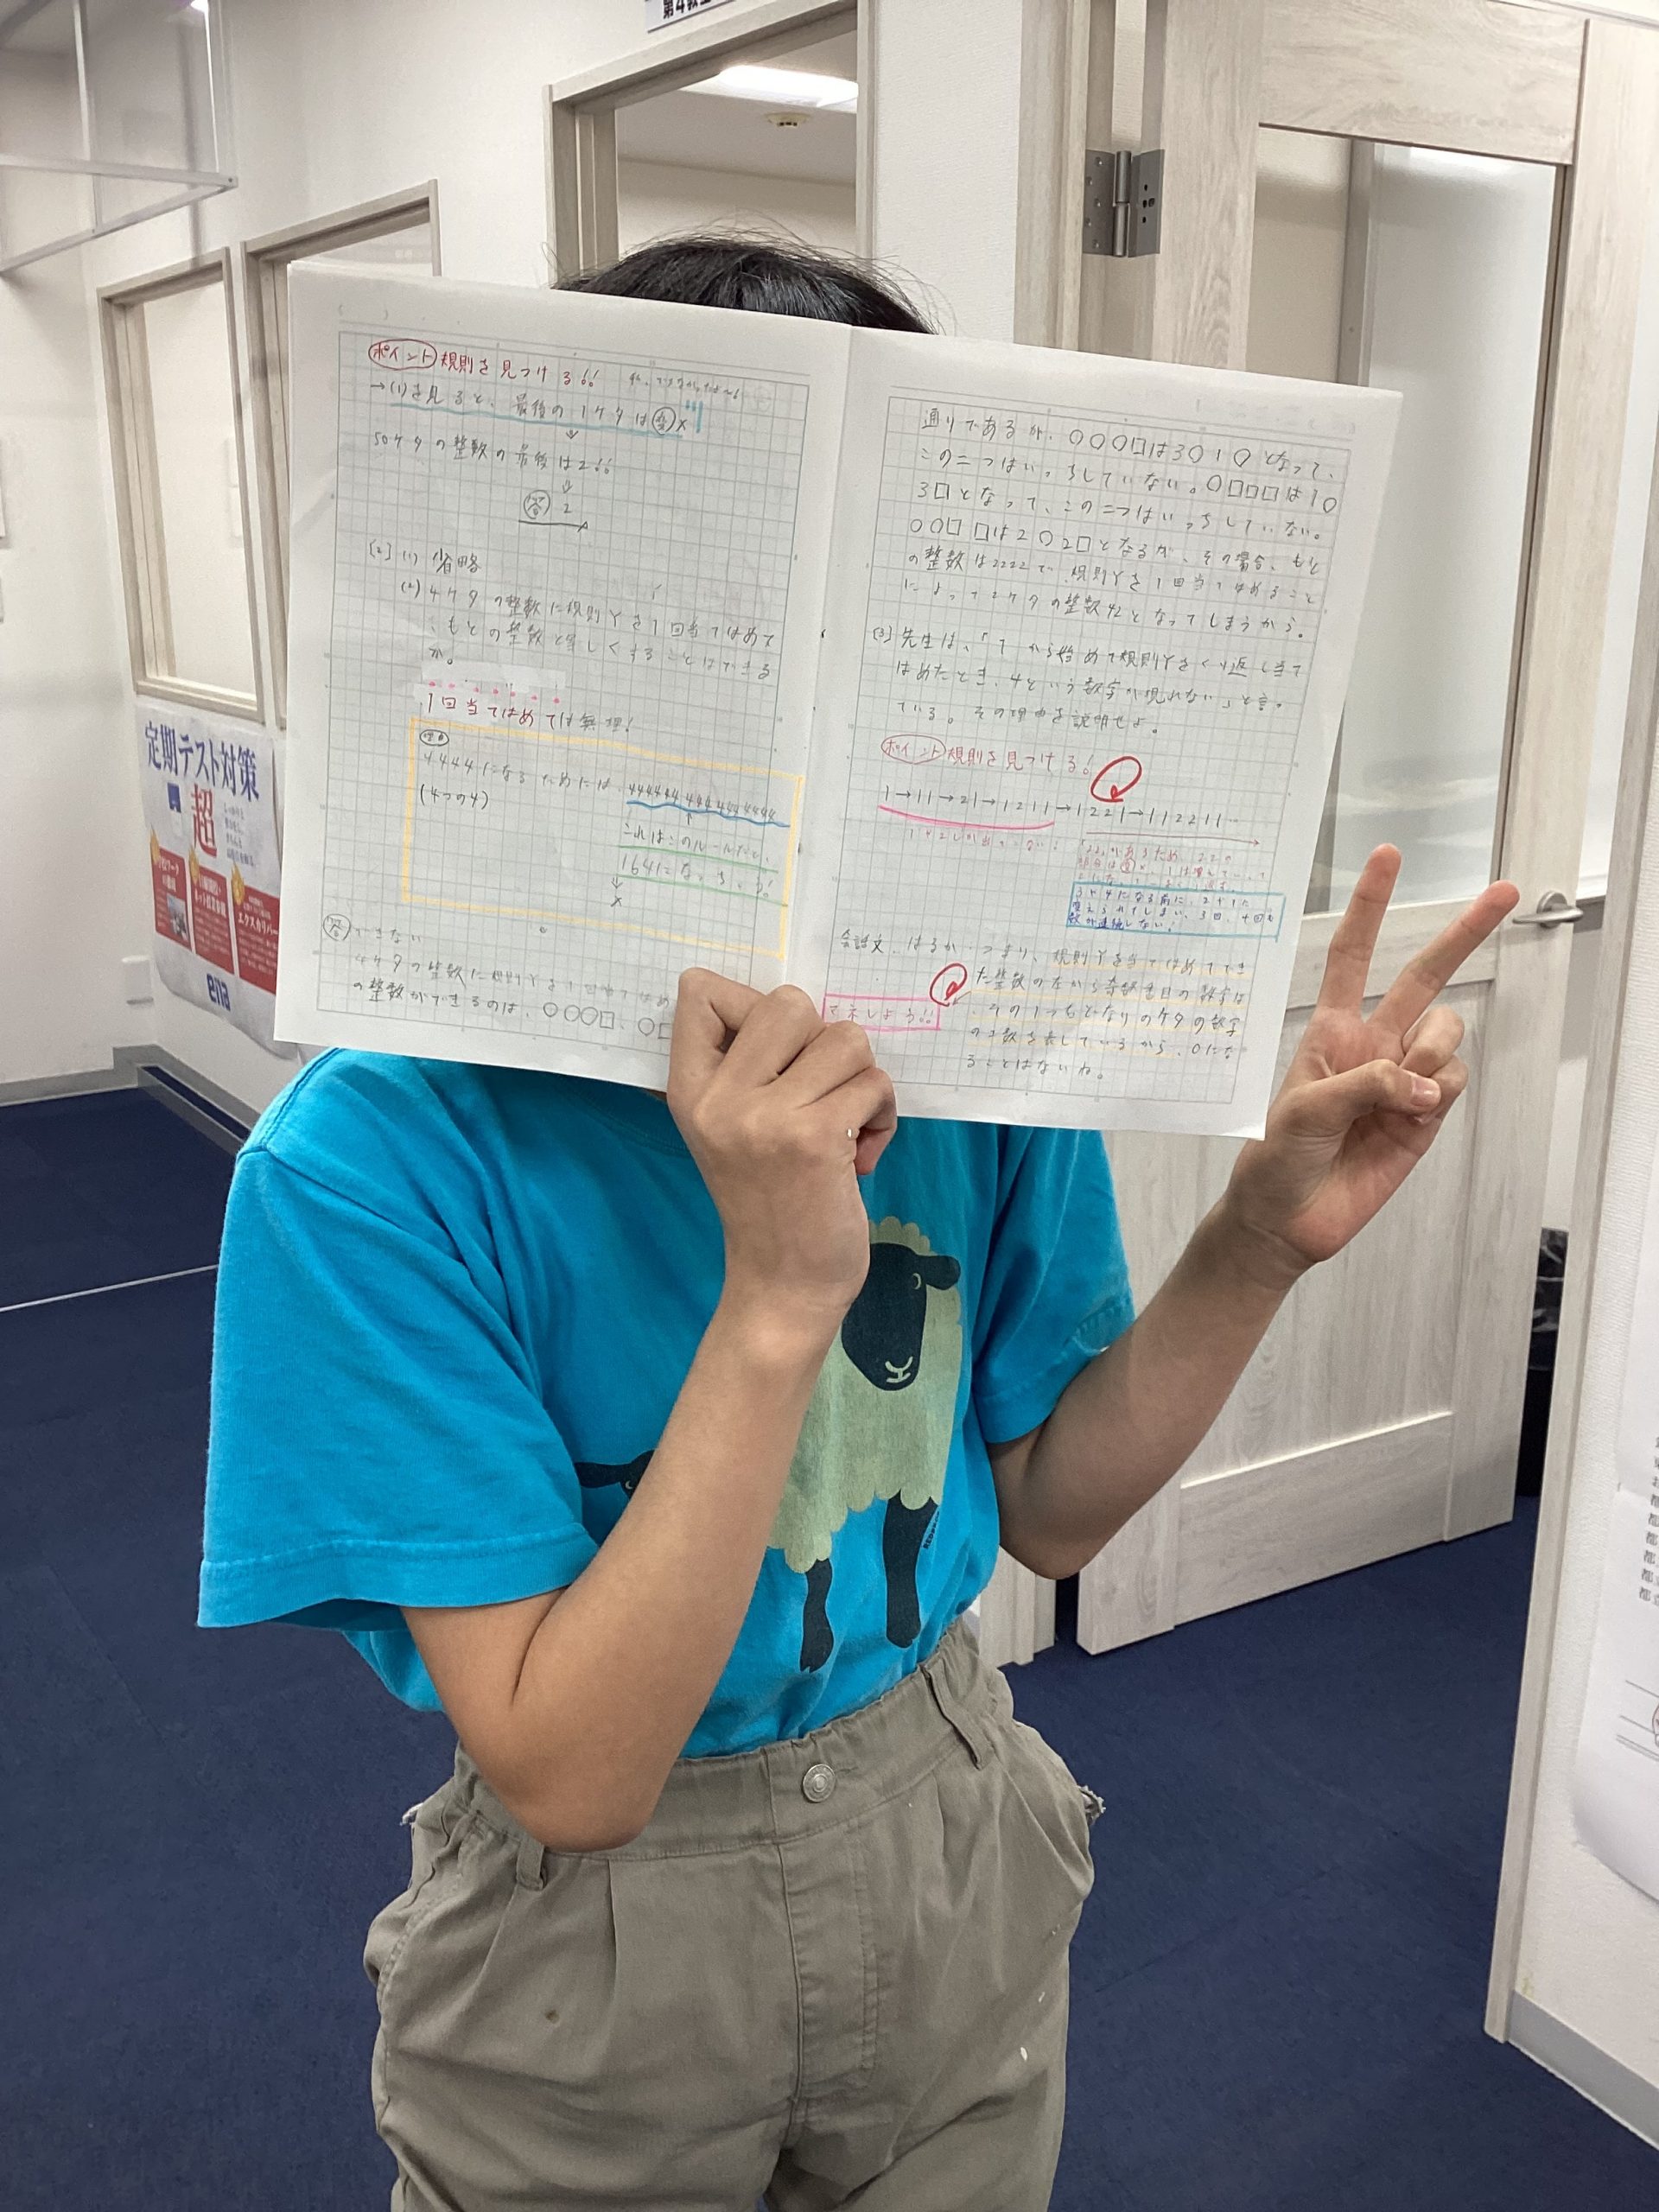 ポイント 規則を見つける!!
→(1)を見ると、最後の1ケタは㊁×
50ケタの整数の最後は2!!
答 2
〔2〕(1) 省略
(2) 4ケタの整数に規則Yを1回当てはめて
もとの整数と等しくすることはできる
か。
1回当てはめては無理!
4444になるためには、4444444444444444
(4つの4)
これはこのルールだと、
1641になっちゃう!
×
答 できない
4ケタの整数に規則Yを1回当てはめ
の整数ができるのは、○○○□、○□
通りであるが、○○○□は3○1○となって、
この二つはいっちしていない。○□□□は1○
3□となって、この二つはいっちしていない。
○○□□は2○2□となるが、その場合、もと
の整数は2222で、規則Yを1回当てはめること
によって2ケタの整数42となってしまうから。
(3) 先生は、「1から始めて規則Yをくり返し当て
はめたとき、4という数字が現れない」と言っ
ている。その理由を説明せよ。
ポイント 規則を見つける!
1→11→21→1211→1221→112211…
3や4になる前に、2や1に
変えられてしまい、3回、4回も
数が連続しない!
会話文 はるか…つまり、規則Yを当てはめてでき
た整数の左から奇数番目の数字は
、その1つ右どなりのケタの数字
の個数を表しているから、0にな
ることはないね。
マネしよう!!
定期テスト対策
超
エクスカリバー
ena